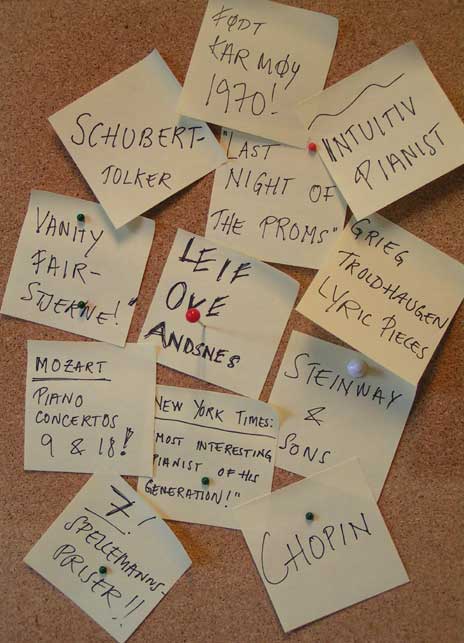 FØDT
KARMØY
1970!
SCHUBERT-
TOLKER
INTUITIV
PIANIST
"LAST
NIGHT OF
THE PROMS"
VANITY
FAIR-
STJERNE!"
LEIF
OVE
ANDSNES
GRIEG
TROLDHAUGEN
LYRIC PIECES
MOZART
PIANO
CONCERTOS
9 & 18!
NEW YORK TIMES:
"MOST INTERESTING
PIANIST OF HIS
GENERATION!"
STEINWAY
&
SONS
7!
SPELLEMANNS-
PRISER!!
CHOPIN